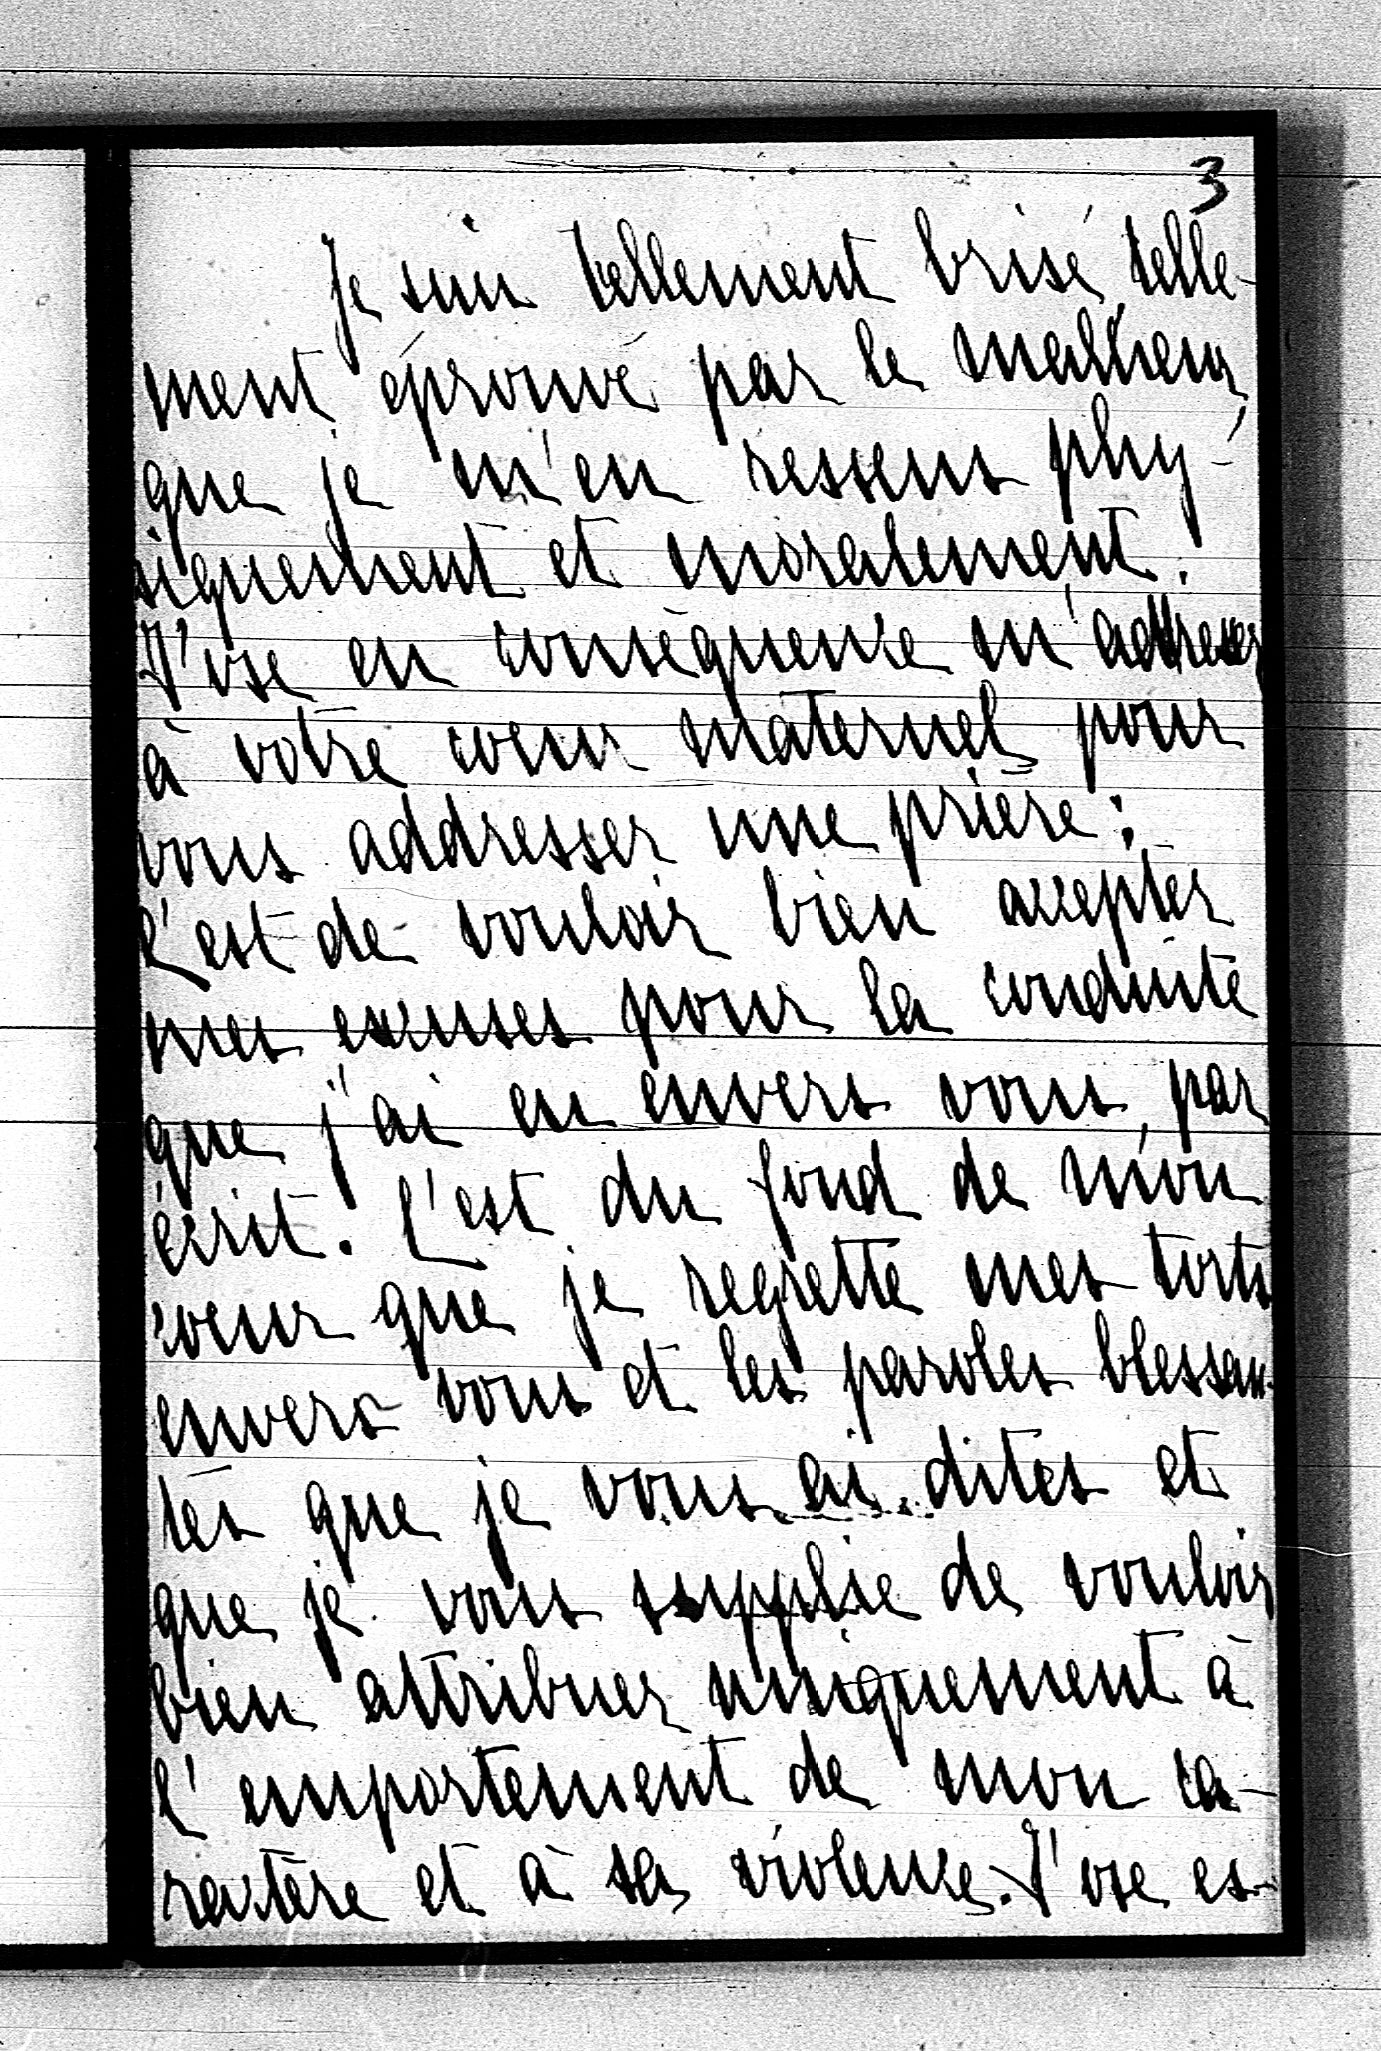 3
Je suis tellement brisé, telle-
ment éprouvé par le malheur,
que je m'en ressens phy-
siquement et moralement.
J'ose en conséquence m'addresser
à votre coeur maternel, pour
vous addresser une prière:
C'est de vouloir bien accepter
mes excuses pour la conduite
que j'ai eu envers vous, par
écrit. C'est du fond de mon
coeur que je regrette mes torts
envers vous et les paroles blessan-
tes que je vous ai dites et
que je vous supplie de vouloir
bien attribuer uniquement à
l'emportement de mon ca-
ractère et à sa violence. J'ose es-